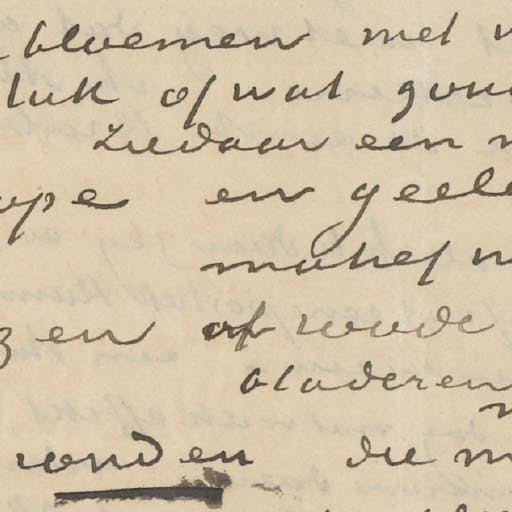 bloemen met
luk of wat gou
ziedaar een
upe en geele
motief
zen of roode
bladeren
ronden die m